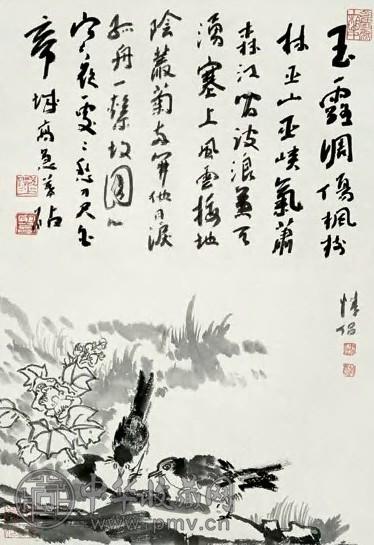 玉露凋傷楓樹
林巫山巫峽氣蕭
森江間波浪兼天
湧塞上風雲接地
陰叢菊兩開他日淚
孤舟一繫故園心
寒衣處〻催刀尺白
帝城高急暮砧
情侣
中华收藏网
www.pmv.cn